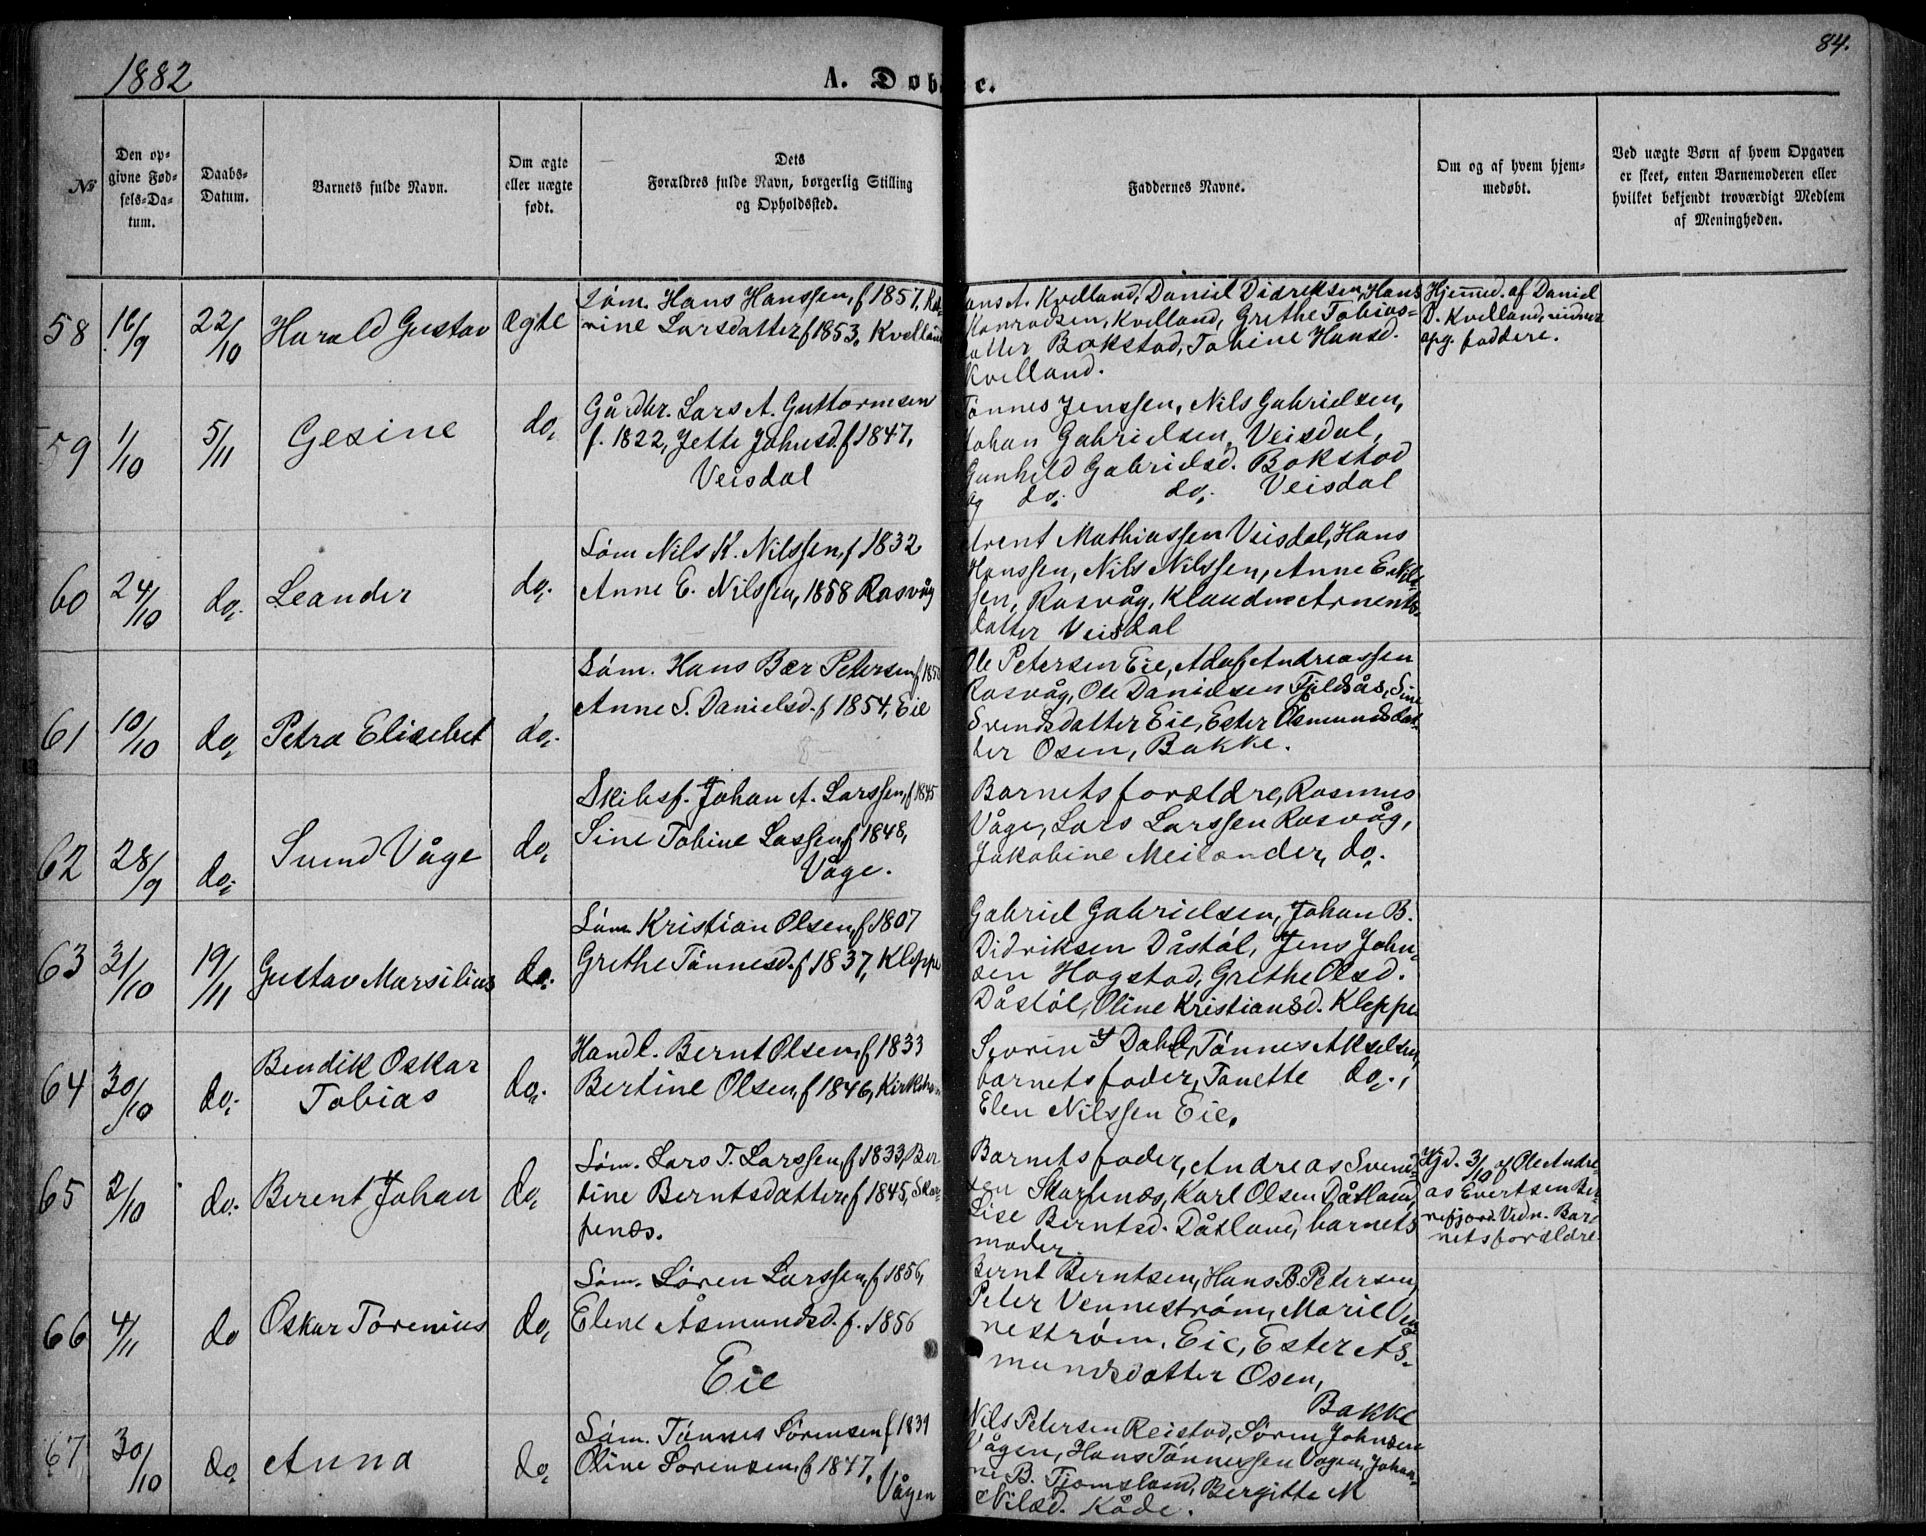 1882
A. Døb e.
84.
No
Den op-
givne Fød-
sels-Da-
tum.
Daabs-
Datum.
Barnets fulde Navn.
Om ægte
eller uægte
født.
Dets
Forældres fulde Navn, borgerlig Stilling
og Opholdssted.
Faddernes Navne.
Om og af hvem hjem-
medøbt.
Ved uægte Børn af hvem Opgaven
er skeet, enten Barnemoderen eller
hvilket bekjendt troværdigt Medlem
af Meningheden.
58 16/9 22/10 Harald Gustav ægte
Søm. Hans Hanssen, f 1857, Kat-
rine Larsdatter f 1853, Kvelland
ans A. Kvelland, Daniel Didreksen, Hans
Konradsen, Kvelland, Grethe Tobias-
atter Bokstad, Tobine Hansd.
Kvelland.
Hjemmed. af Daniel
D. Kvelland, vidner
opg. faddere.
59 1/10 5/11 Gesine do.
Gårdbr. Lars A. Guttormsen
f. 1822, Jette Johnsd. f 1847,
Veisdal
Tønnes Jenssen, Nils Gabrielsen,
Johan Gabrielsen, Veisdal,
Gunhild Gabrielsd. Bokstad
og do. do. Veisdal
60 24/10 do. Leander do.
Søm Nils K. Nilssen, f 1832
Anne E. Nilssen, 1858 Rasvåg
Arent Mathiassen Veisdal, Hans
Hanssen, Nils Nilssen, Anne E. Nils-
sen, Rasvåg, Klaudine Arnents-
datter Veisdal
61 10/10 do. Petra Elisebet do.
Søm. Hans Bær Petersen, f 185
Anne S. Danielsd. f 1854, Eie
Ole Petersen Eie, Adolf Andreassen
Rasvåg, Ole Danielsen Fjeldsås, Sine
Svendsdatter Eie, Ester Osmundsdat-
ter Osen, Bakke.
62 28/9 do. Svend Våge do.
Skibsf. Johan A. Larssen, f 1845
Sine Tobine Lassen, f 1848,
Våge.
Barnets forældre, Rasmus
Våge, Lars Larssen Rasvåg,
Jakobine Meilander, do.
63 31/10 19/11 Gustav Marsilius do.
Søm Kristian Olsen, f 1807
Grethe Tønnesd. f 1837, Kleppe
Gabriel Gabrielsen, Johan B.
Didriksen Dåstøl, Jens John-
sen Hogstad, Grethe Olsd.
Dåstøl, Oline Kristiansd. Kleppe
64 30/10 do. Bendik Oskar
Tobias do.
Handl. Bernt Olsen, f 1833
Bertine Olsen, f 1846, Kirkehavn
Severin S Dahl, Tønnes Akselsen,
barnets fader, Tanette do.,
Elen Nilssen Eie.
65 2/10 do. Berent Johan do.
Søm. Lars T. Larssen, f 1833, Ber
tine Berntsdatter, f 1845, Skar-
penæs.
Barnets fader, Andreas Svend-
sen Skarpenæs, Karl Olsen Dåtland,
Lise Berntsd. Dåtland, barnets
moder.
Hjd. 3/10 af Ole Andre
as Evertsen Ber-
refjord. Vidn. Bar-
netsforældre
66 4/11 do Oskar Torenius do.
Søm. Søren Larssen, f 1856,
Elene Åsmundsd. f. 1856
Eie
Bernt Berntsen, Hans B. Petersen,
Peter Vennestrøm, Marie Ven
nestrøm, Eie, Ester As-
mundsdatter Osen,
Bakke
67 30/10 do. Anna do.
Søm. Tønnes Sørensen f 1839
Oline Sørensen, f 1847,
Vågen
Nils Petersen Reistad, Søren Johnsen
Vågen, Hans Tønnessen Vågen, Johan-
ne B. Tjomsland, Bergitte M
Nilsd. Kåde.